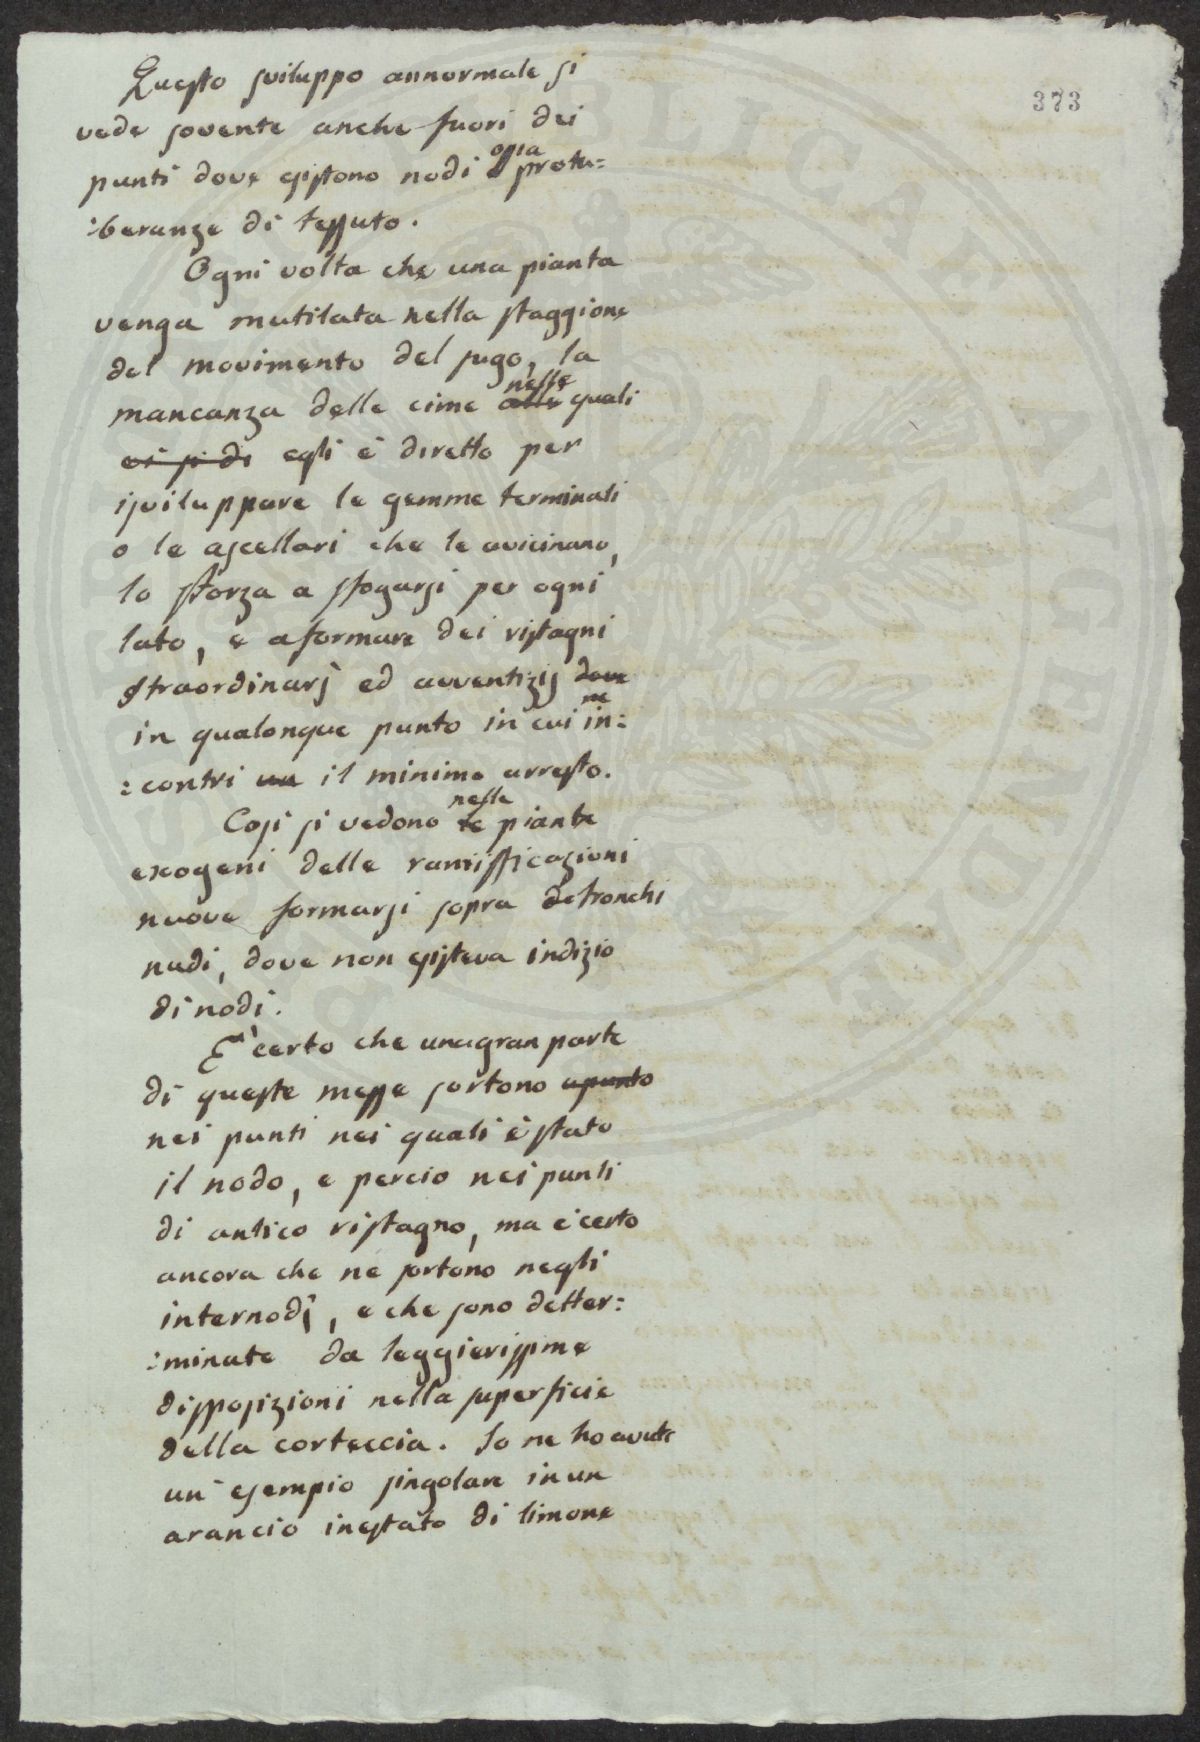 373
Questo sviluppo annormale si
vede sovente anche fuori dei
punti dove esistono nodi ossia protu=
:beranze di tessuto.
Ogni volta che una pianta
venga mutilata nella staggione
del movimento del sugo, la
mancanza delle cime alle nelle quali
vi si di egli è diretto per
isviluppare le gemme terminali
o le ascellari che le avicinano,
lo sforza a sfogarsi per ogni
lato, e a formare dei ristagni
straordinarj ed avventizij dove
in qualonque punto in cui ne in:
:contri un il minimo arresto.
Cosi si vedono le nelle piante
exogeni delle ramifficazioni
nuove formarsi sopra de tronchi
nudi, dove non esisteva indizio
di nodi.
E' certo che una gran parte
di queste messe sortono apunto
nei punti nei quali è stato
il nodo, e percio nei punti
di antico ristagno, ma è certo
ancora che ne sortono negli
internodj, e che sono detter:
:minate da leggierissime
dispposizioni nella superficie
della corteccia. Io ne ho avute
un esempio singolare in un
arancio inestato di limone